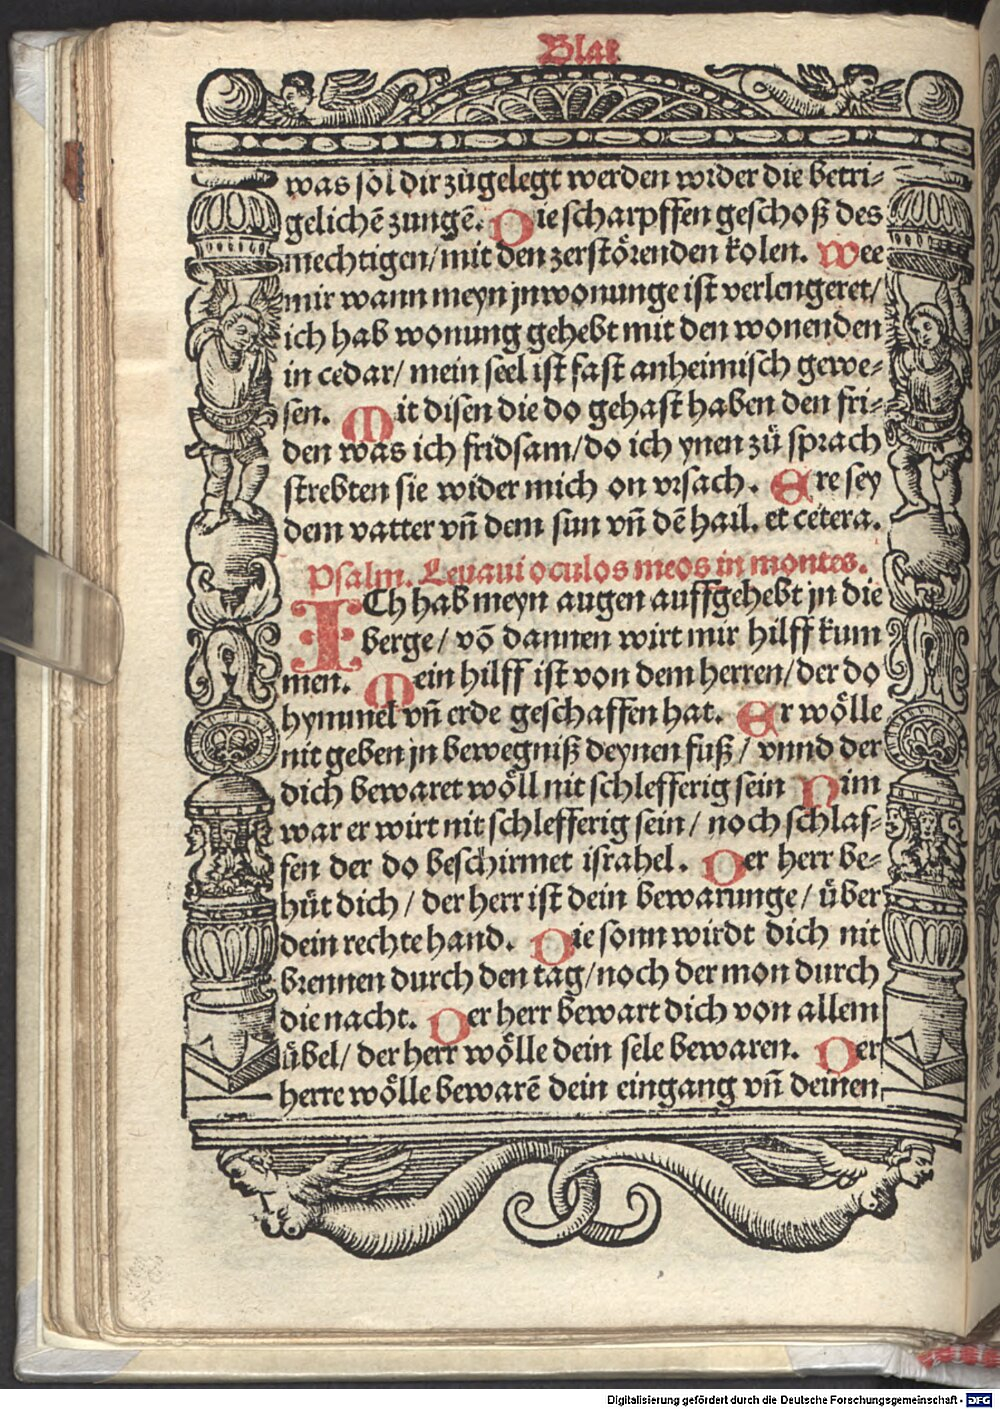 Blat
was sol dir zůgelegt werden wider die betri⸗
gelichē zungē. Die scharpffen geschoß des
mechtigen/ mit den zerstörenden kolen. Wee
mir wann meyn jnwonunge ist verlengeret/
ich hab wonung gehebt mit den wonenden
in cedar/ mein seel ist fast anheimisch gewe⸗
sen. Mit disen die do gehast haben den fri⸗
den was ich fridsam/ do ich ynen zů sprach
strebten sie wider mich on vrsach. Ere sey
dem vatter vñ dem sun vñ dē hail. et cetera.
Psalm. Leuaui oculos meos in montes.
ICh hab meyn augen auffgehebt jn die
berge/ vō dannen wirt mir hilff kum
men. Mein hilff ist von dem herren/ der do
hymmel vñ erde geschaffen hat. Er wölle
nit geben jn bewegniß deynen fuß/ vnnd der
dich bewaret wöll nit schlefferig sein Nim
war er wirt nit schlefferig sein/ noch schlaf⸗
fen der do beschirmet israhel. Der herr be⸗
hüt dich/ der herr ist dein bewarunge/ über
dein rechte hand. Die sonn wirdt dich nit
brennen durch den tag/ noch der mon durch
die nacht. Der herr bewart dich von allem
übel/ der herr wölle dein sele bewaren. Der
herre wölle bewarē dein eingang vñ deinen
Digitalisierung gefördert durch die Deutsche Forschungsgemeinschaft - DFG